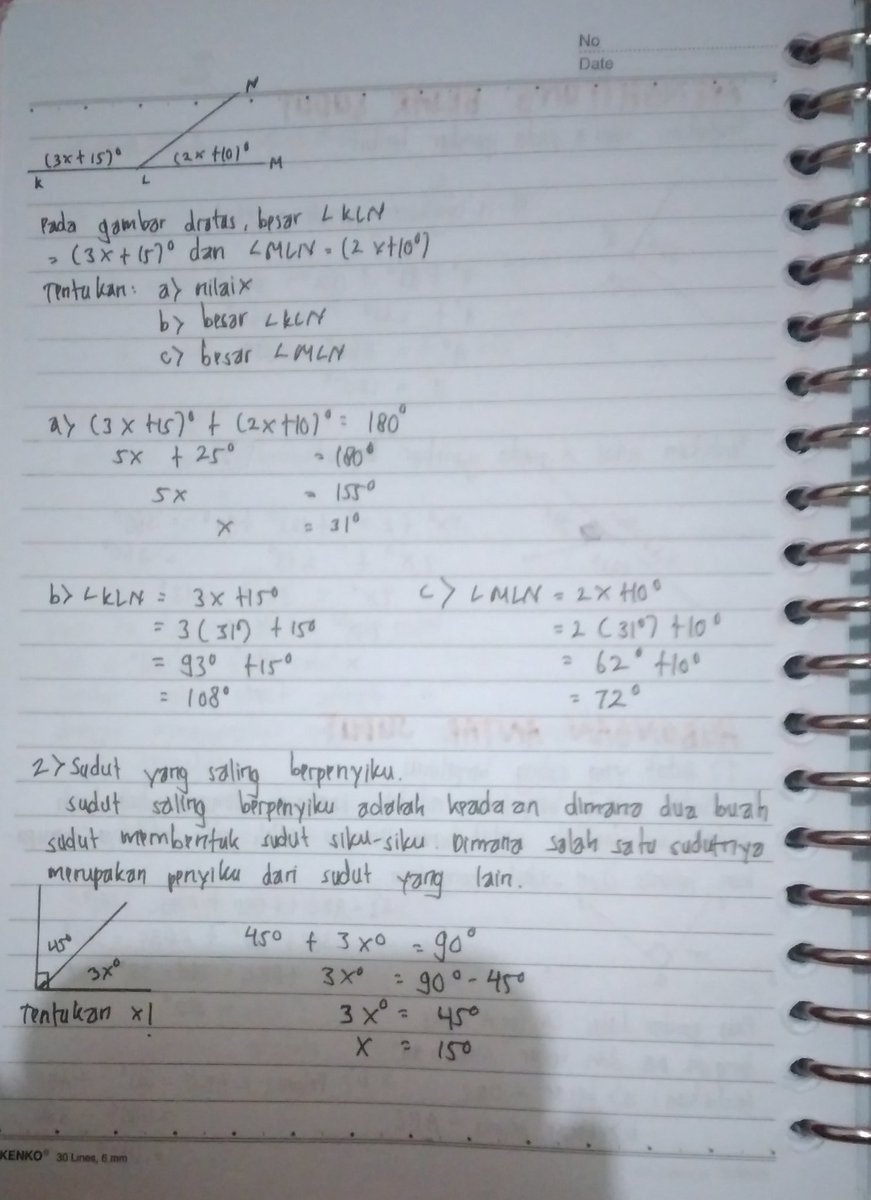 No
Date
N
(3x+15)° (2x+10)° M
K L
Pada gambar diatas, besar ∠KLN
= (3x+15)° dan ∠MLN = (2x+10°)
Tentukan: a) nilai x
b) besar ∠KLN
c) besar ∠MLN
a) (3x+15)° + (2x+10)° = 180°
5x + 25° = 180°
5x = 155°
x = 31°
b) ∠KLN = 3x+15° c) ∠MLN = 2x+10°
= 3(31°) + 15° = 2(31°) + 10°
= 93° + 15° = 62° + 10°
= 108° = 72°
2) Sudut yang saling berpenyiku.
sudut saling berpenyiku adalah keadaan dimana dua buah
sudut membentuk sudut siku-siku. Dimana salah satu sudutnya
merupakan penyiku dari sudut yang lain.
45° 45° + 3x° = 90°
3x° 3x° = 90° - 45°
Tentukan x! 3x° = 45°
x = 15°
KENKO® 30 Lines, 6 mm